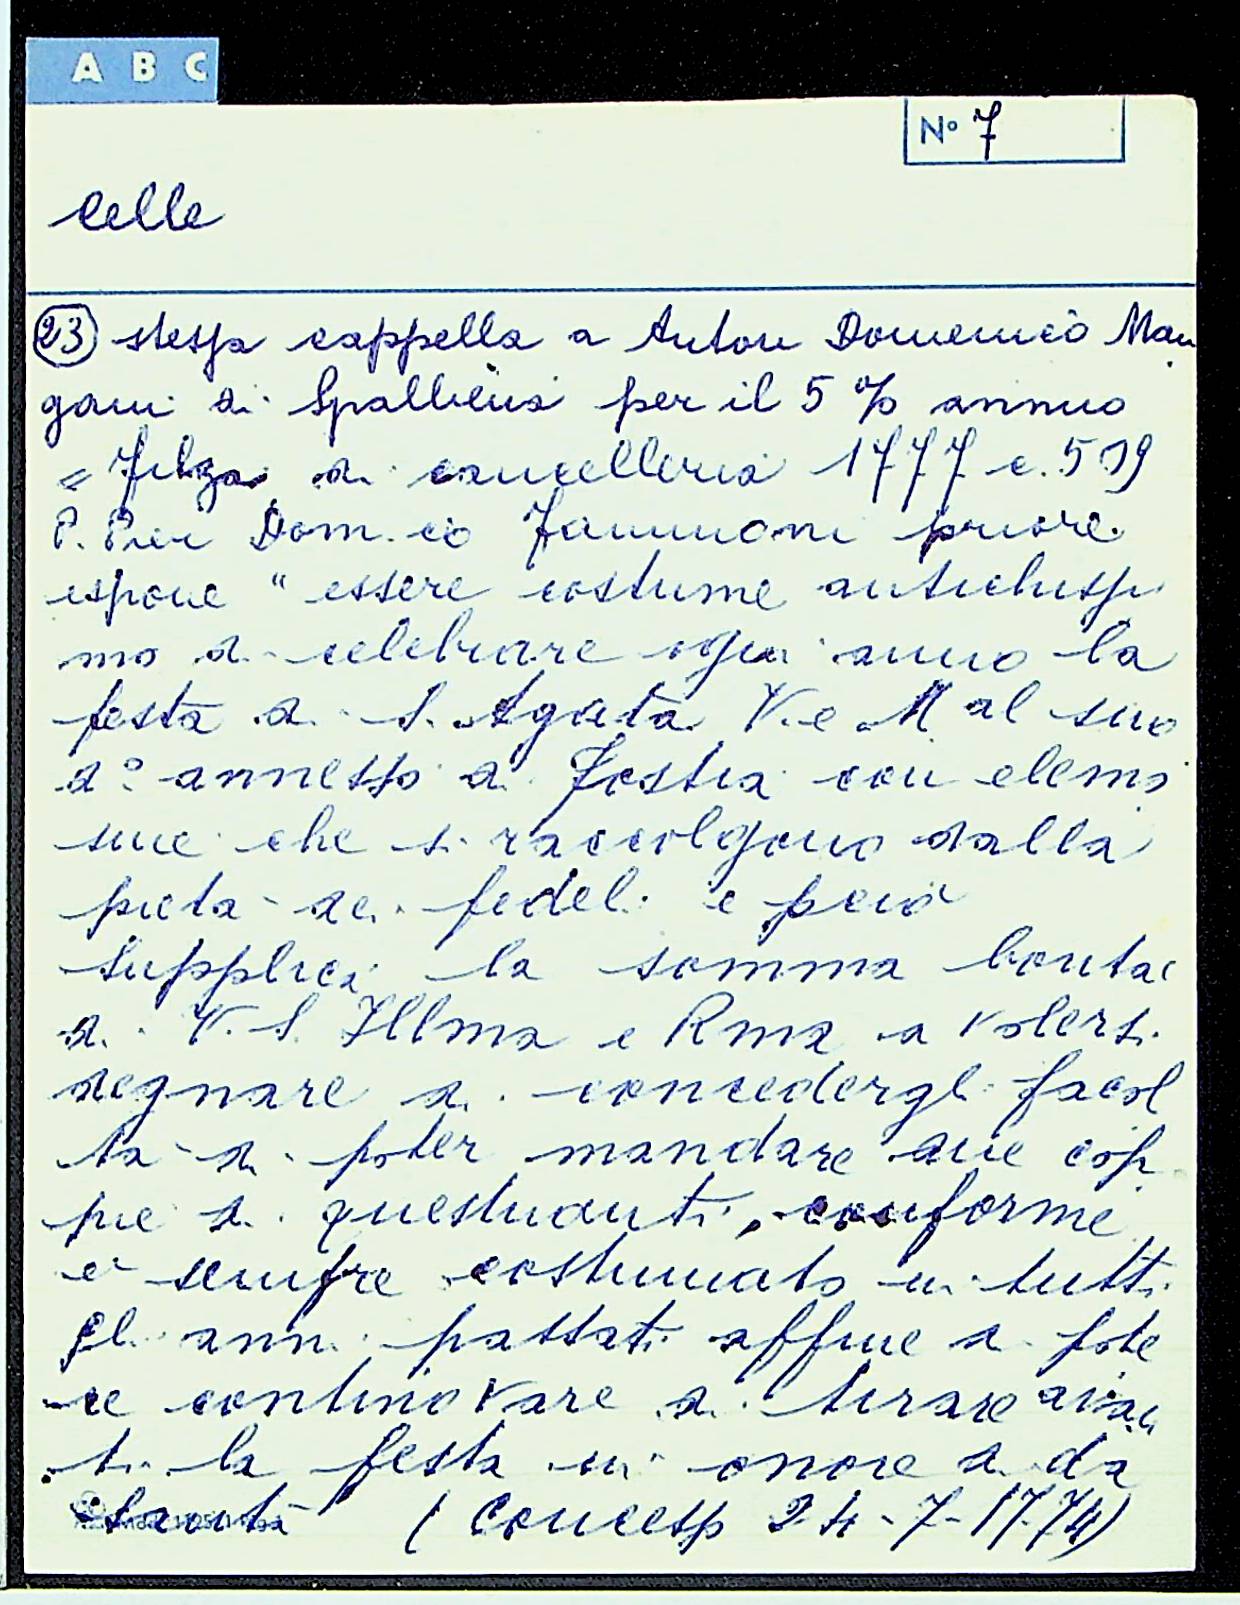 A B C
N° 7
Celle
23 stessa cappella a Anton Domenico Man
gani di Spalbena per il 5 % annuo
= Filza di cancelleria 1777 c. 519
P. Pier Dom.co priore
espone " essere costume antichissi
mo di celebrare ogni anno la
festa di S. Agata V. e M al suo
d° annesso di con elemo
sine che si raccolgono dalla
pieta dei fedeli e però
supplica la somma bontà
di V. S. Illma e Rma a volersi
degnare di concedergli facol
tà di poter mandare due cop
pie di questuanti, conforme
è sempre costumato in tutti
gli anni passati affine di pote
re continovare di tirare avan
ti la festa in onore di da
Santa (Concess 24-7-1774)